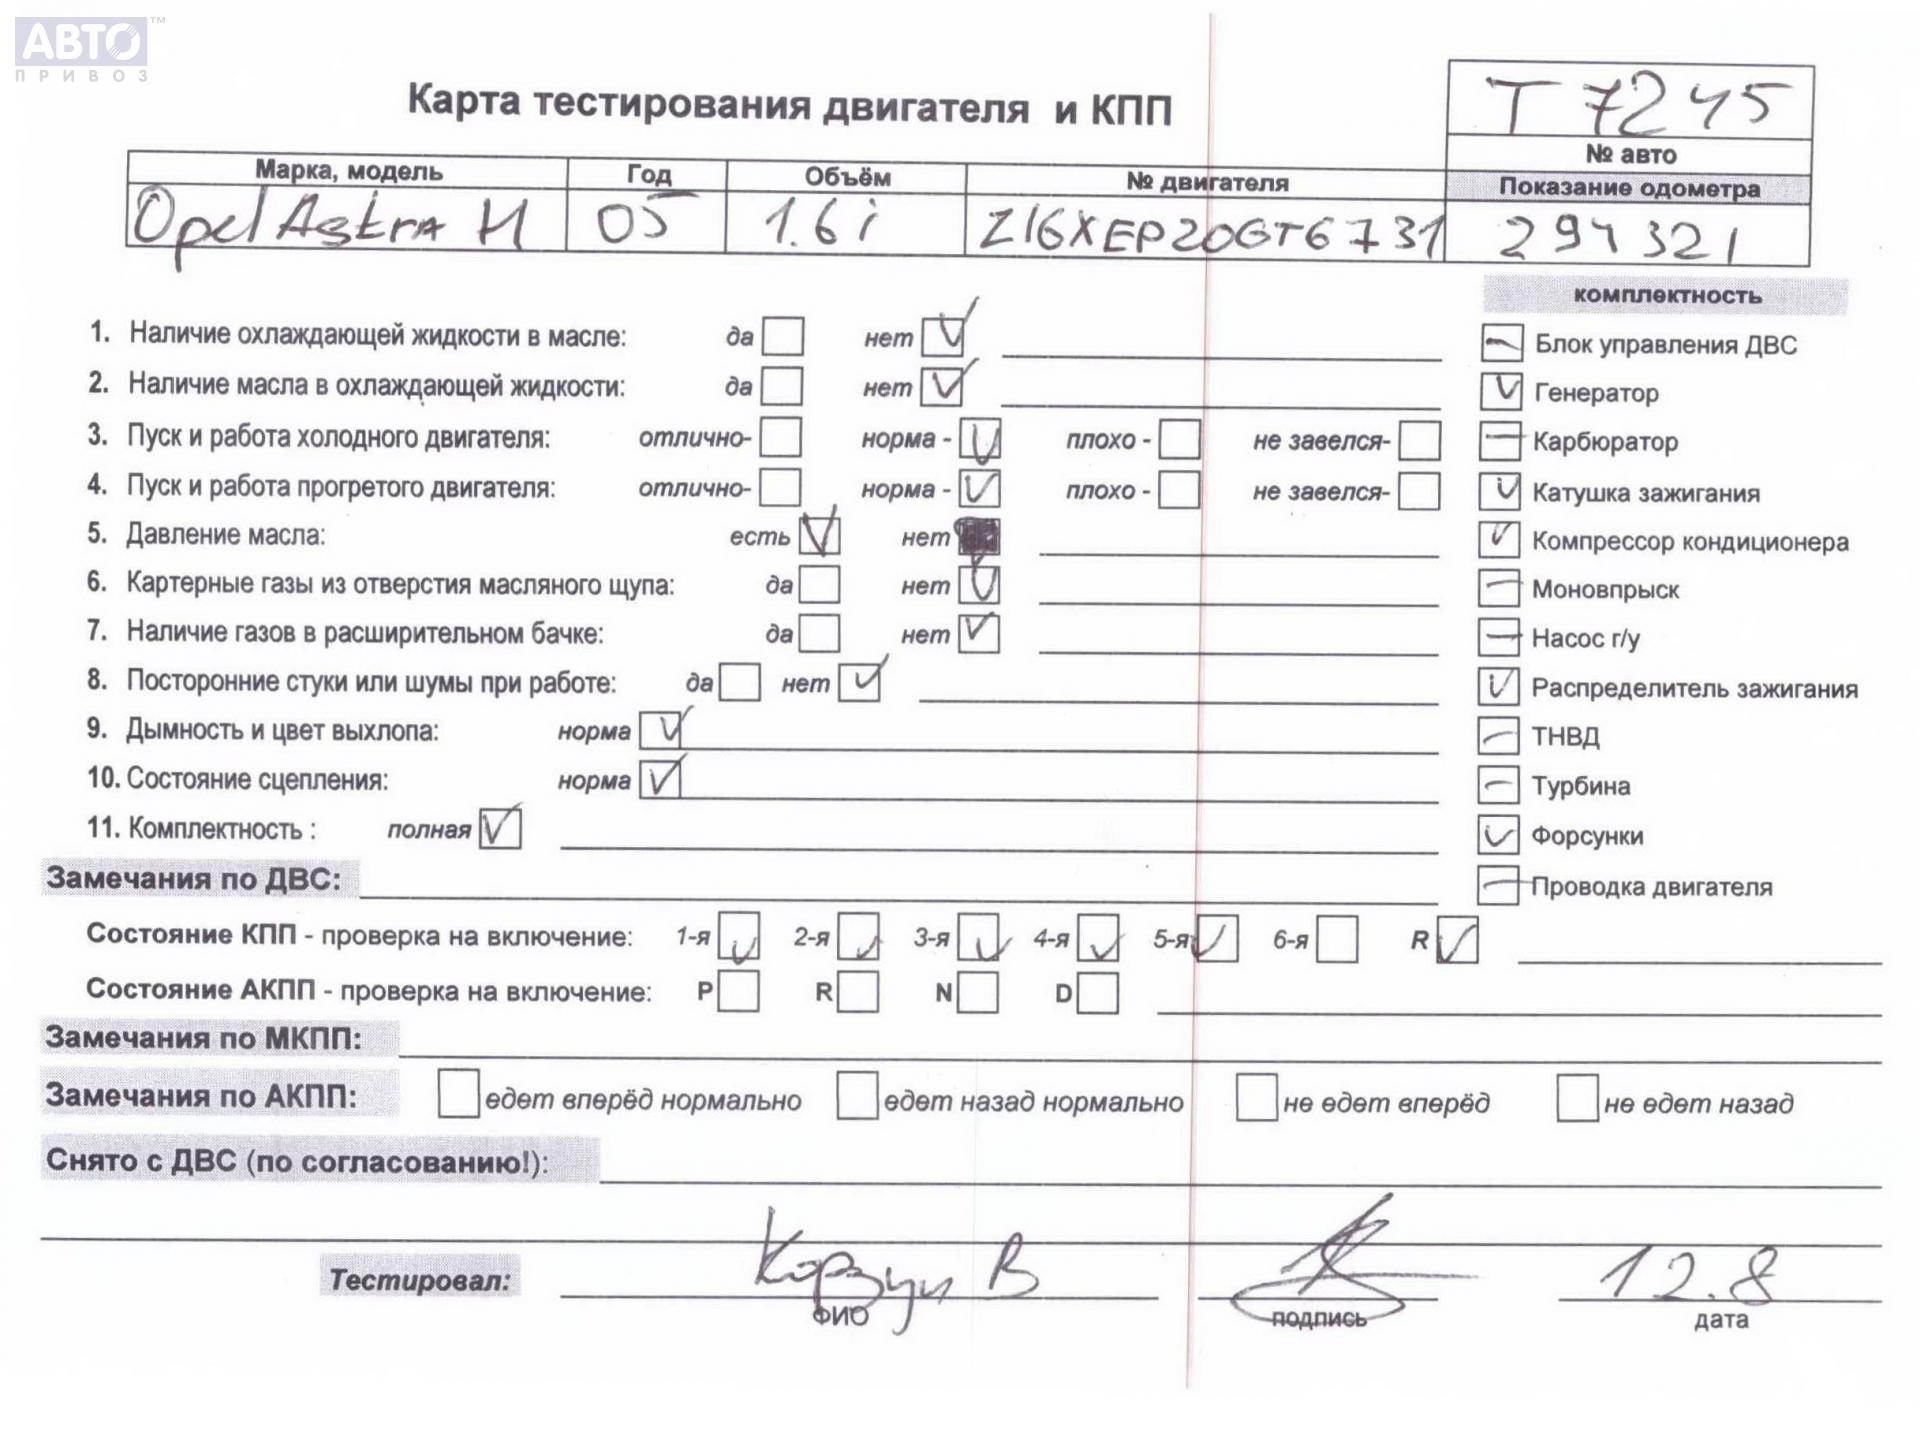 АВТО™
ПРИВОЗ
Карта тестирования двигателя и КПП
T 7245
№ авто
Марка, модель Год Объём № двигателя Показание одометра
Opel Astra H 05 1.6 i Z16XEP20GT6731 294321
комплектность
1. Наличие охлаждающей жидкости в масле: да нет
Блок управления ДВС
2. Наличие масла в охлаждающей жидкости: да нет
Генератор
3. Пуск и работа холодного двигателя: отлично- норма - плохо - не завелся-
Карбюратор
4. Пуск и работа прогретого двигателя: отлично- норма - плохо - не завелся-
Катушка зажигания
5. Давление масла: есть нет
Компрессор кондиционера
6. Картерные газы из отверстия масляного щупа: да нет
Моновпрыск
7. Наличие газов в расширительном бачке: да нет
Насос г/у
8. Посторонние стуки или шумы при работе: да нет
Распределитель зажигания
9. Дымность и цвет выхлопа: норма
ТНВД
10. Состояние сцепления: норма
Турбина
11. Комплектность : полная
Форсунки
Замечания по ДВС:
Проводка двигателя
Состояние КПП - проверка на включение: 1-я 2-я 3-я 4-я 5-я 6-я R
Состояние АКПП - проверка на включение: P R N D
Замечания по МКПП:
Замечания по АКПП: едет вперёд нормально едет назад нормально не едет вперёд не едет назад
Снято с ДВС (по согласованию!):
Тестировал: Корзун В 12.8
ФИО подпись дата